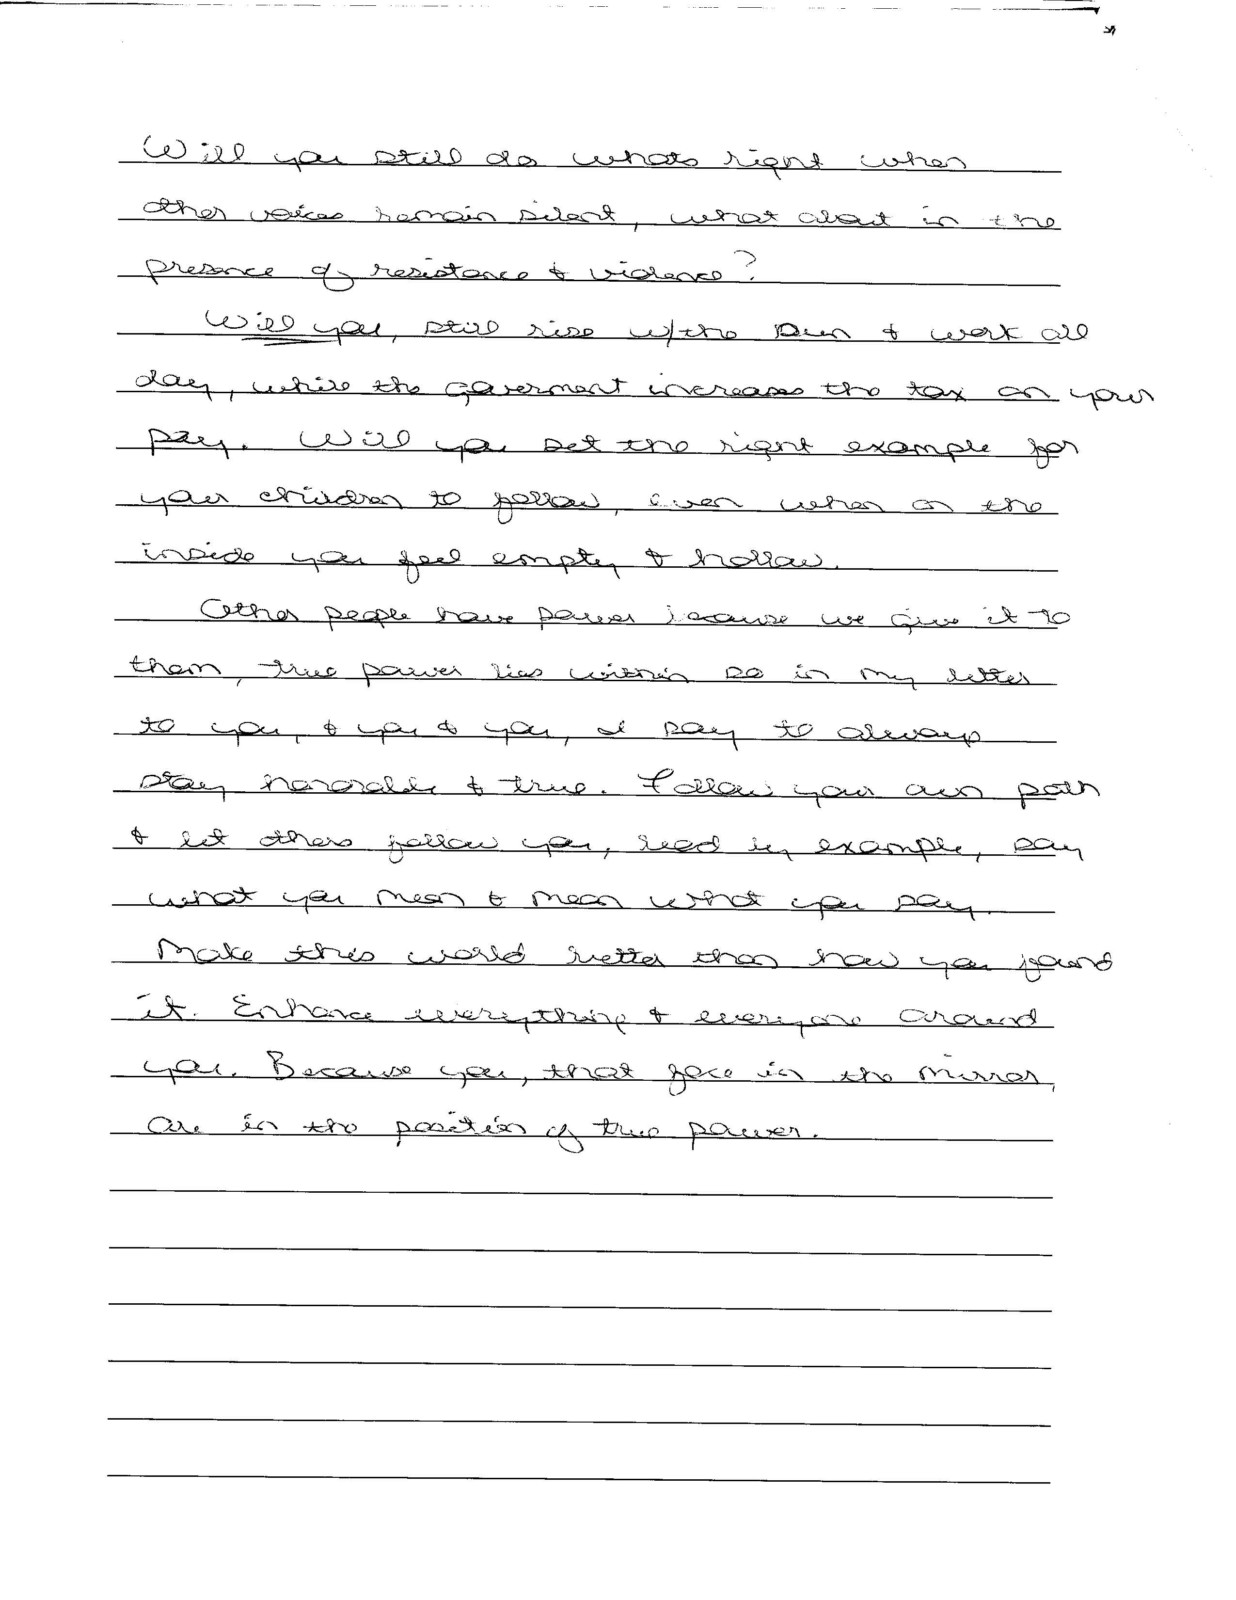 Will you still do whats right when
other voices remain silent, what about in the
presence of resistance & violence?
Will you, still rise w/the sun & work all
day, while the goverment increases the tax on your
pay. Will you set the right example for
your children to follow, even when on the
inside you feel empty & hollow.
Other people have power because we give it to
them, true power lies within so in my letter
to you, & you & you, I say to always
stay honorable & true. Follow your own path
& let others follow you, lead by example, say
what you mean & mean what you say.
Make this world better than how you found
it. Enhance everything & everyone around
you. Because you, that face in the mirror,
are in the position of true power.